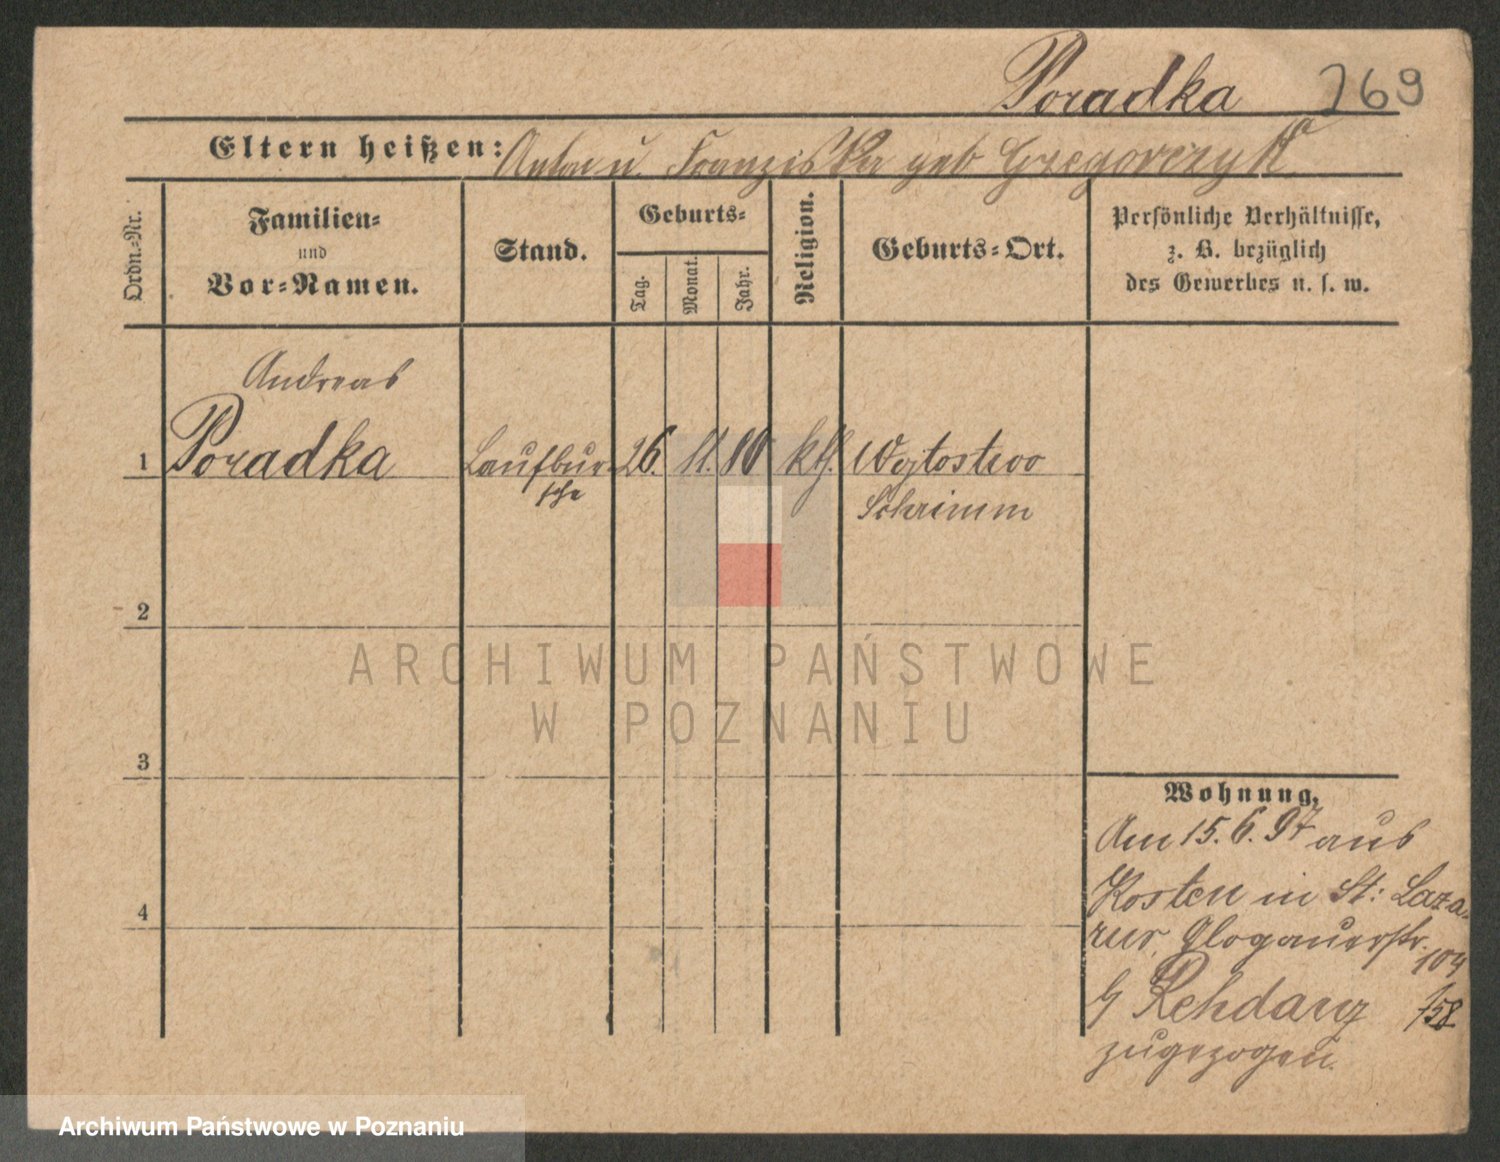 Poradka 769
Eltern heißen: Anton u. Franziska geb Grzegorczyk
Ordn.-Nr.
Familien-
und
Vor-Namen.
Stand.
Geburts-
Tag.
Monat.
Jahr.
Religion.
Geburts-Ort.
Persönliche Verhältnisse,
z. B. bezüglich
des Gewerbes u. s. w.
Andreas
1 Poradka Laufbur- 26. 11. 80 kth. Wojtostwo
sche Schrimm
2
ARCHIWUM PAŃSTWOWE
W POZNANIU
3
Wohnung.
Am 15. 6. 97 aus
Kosten in St: Laza-
rus, Glogauerstr.
104
b/ Rehdanz /58
zugezogen.
4
Archiwum Państwowe w Poznaniu